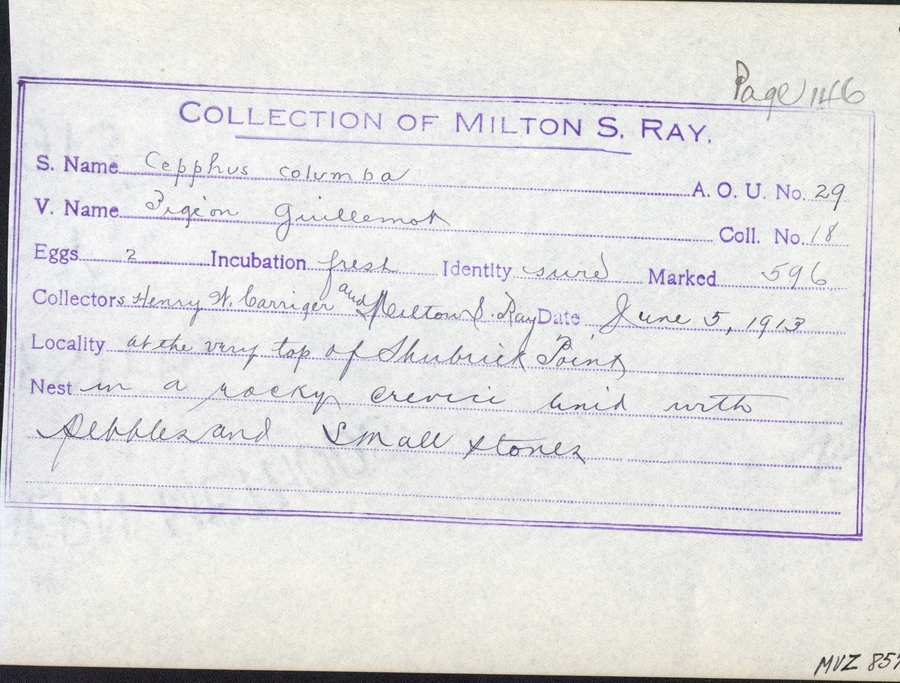 Page 146
COLLECTION OF MILTON S. RAY.
S. Name Cepphus columba A. O. U. No. 29
V. Name Pigeon Guillemot Coll. No. 18
Eggs 2 Incubation fresh Identity sure Marked 596
Collectors Henry W. Carriger and Milton S. Ray Date June 5, 1913
Locality at the very top of Shubrick Point
Nest in a rocky crevice lined with
Pebbles and small stones
MVZ 857